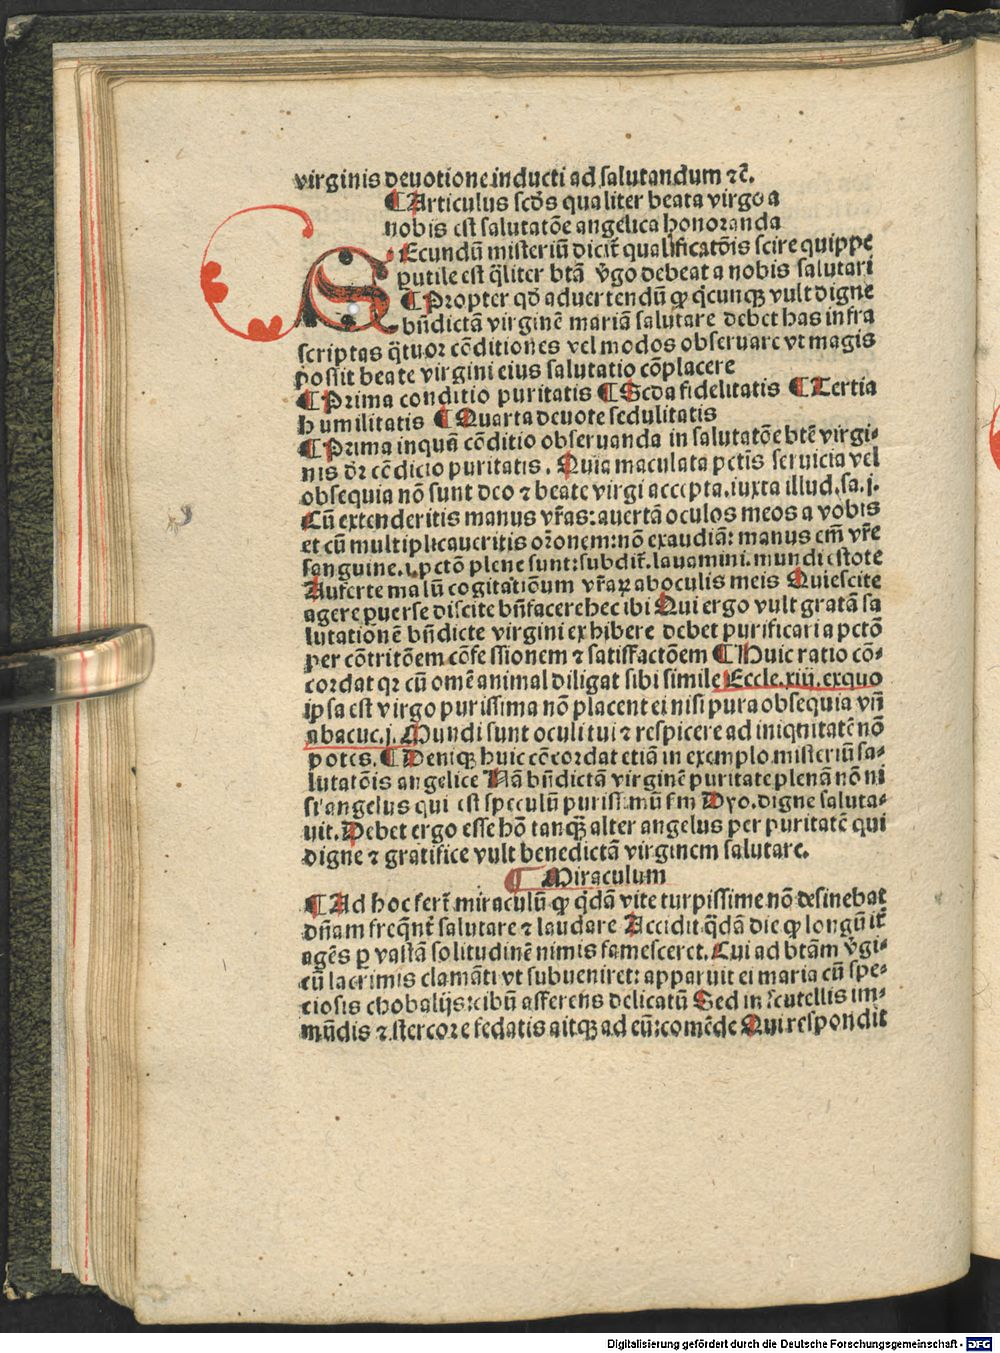 virginis deuotione inducti ad salutandum ⁊č.
¶ Articulus scd̄s qualiter beata virgo a
nobis est salutatōe angelica honoranda
SEcundū misteriū dicit̄ qualificatōis scire quippe
ꝑutile est q̄liter btā v̄go debeat a nobis salutari
¶ Propter qd̄ aduertendū ꝙ q̄cunqꝫ vult digne
bn̄dictā virginē mariā salutare debet has infra
scriptas q̄tuor cōditiones vel modos obseruare vt magis
possit beate virgini eius salutatio cōplacere
¶ Prima conditio puritatis ¶ Scda fidelitatis ¶ Tertia
humilitatis ¶ Quarta deuote sedulitatis
¶ Prima inquā cōditio obseruanda in salutatōe btē virgi-
nis dr̄ cōditio puritatis. Quia maculata pctīs seruicia vel
obsequia nō sunt deo ⁊ beate virgi accepta. iuxta illud. sa. j.
Cū extenderitis manus vr̄as: auertā oculos meos a vobis
et cū multiplicaueritis or̄onem: nō exaudiā: manus em̄ vr̄e
sanguine. i. pctō plene sunt: subdit̄. lauamini. mundi estote
Auferte malū cogitatiōum vr̄aꝝ ab oculis meis Quiescite
agere ꝑuerse discite bn̄facere hec ibi Qui ergo vult gratā sa
lutationē bn̄dicte virgini exhibere debet purificari a pctō
per cōtritōem cōfessionem ⁊ satisfactōem ¶ Huic ratio cō-
cordat qr cū omē animal diligat sibi simile Eccle. xiij. ex quo
ipsa est virgo purissima nō placent ei nisi pura obsequia vn̄
abacuc. j. Mundi sunt oculi tui ⁊ respicere ad iniqnitatē nō
potes. ¶ Deniqꝫ huic cōcordat etiā in exemplo misteriū sa-
lutatōis angelice Nā bn̄dictā virginē puritate plenā nō ni
si angelus qui est speculū purissimū fm Dyo. digne saluta-
uit. Debet ergo esse hō tanqꝫ alter angelus per puritatē qui
digne ⁊ gratifice vult benedictā virginem salutare.
¶ Miraculum
¶ Ad hoc fert̄ miraculū ꝙ q̄dā vite turpissime nō desinebat
dn̄am freq̄nt̄ salutare ⁊ laudare Accidit q̄dā die ꝙ longū it̄
agēs ꝑ vastā solitudinē nimis famesceret. Cui ad btām v̄gi-
cū lacrimis clamāti vt subueniret: apparuit ei maria cū spe-
ciosis chobalijs: cibū afferens delicatū Sed in scutellis im-
mūdis ⁊ stercore fedatis aitqꝫ ad eū: comēde Qui respondit
Digitalisierung gefördert durch die Deutsche Forschungsgemeinschaft - DFG